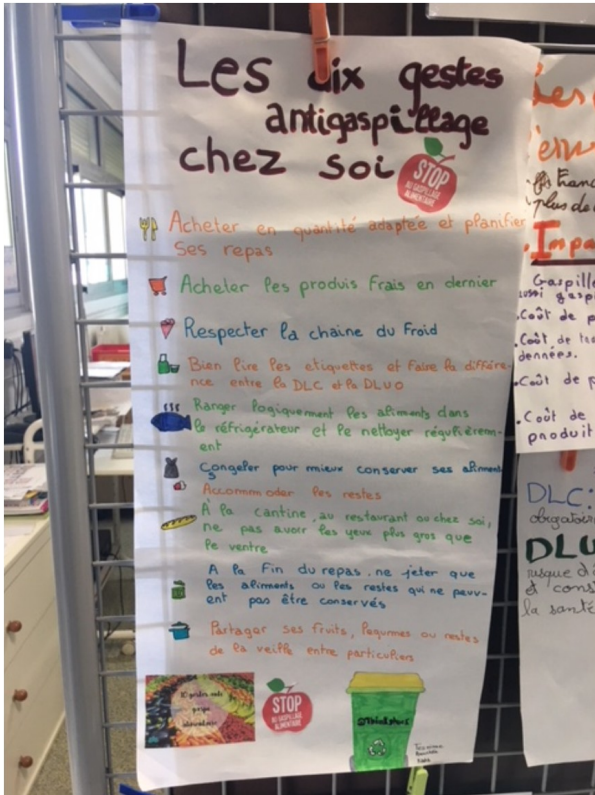 Les dix gestes
antigaspillage
chez soi
STOP
AU GASPILLAGE
ALIMENTAIRE
Acheter en quantité adaptée et planifier
ses repas
Acheter les produis frais en dernier
Respecter la chaine du froid
Bien lire les etiquettes et faire la différe-
nce entre la DLC et la DLUO
Ranger logiquement les aliments dans
le réfrigérateur et le nettoyer régulièrem-
ent
Congeler pour mieux conserver ses aliments
Accommoder les restes
A la cantine, au restaurant ou chez soi,
ne pas avoir les yeux plus gros que
le ventre
A la fin du repas, ne jeter que
les aliments ou les restes qui ne peuv-
ent pas être conservés
Partager ses fruits, légumes ou restes
de la veille entre particuliers
10 gestes anti
gaspi
alimentaire
STOP
AU GASPILLAGE
ALIMENTAIRE
Les
plus de
Impa
Gaspille
aussi gaspi
Coût de p
Coût de tra
données.
Coût de p
Coût de
produit
DLC:
DLU
risque d'
et cons
la santé